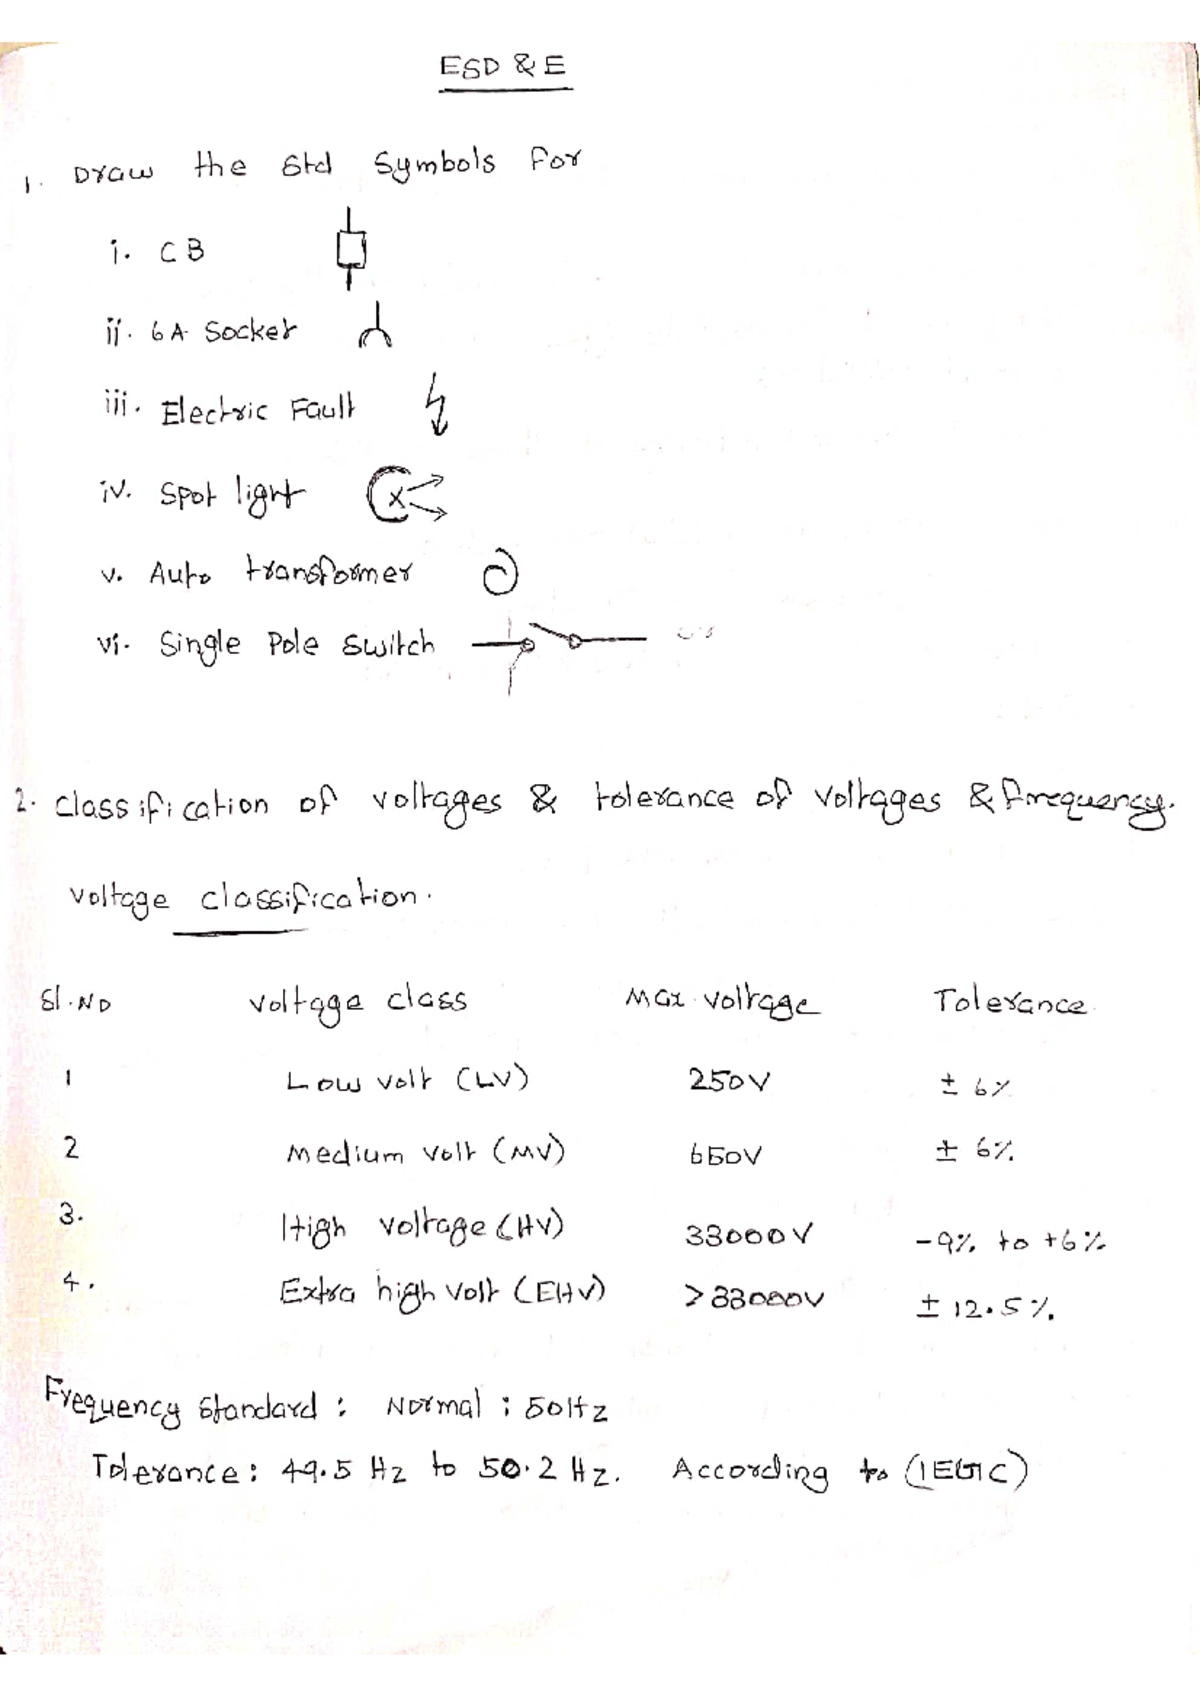 ESD & E
1. Draw the Std Symbols for
i. CB
ii. 6A Socket
iii. Electric Fault
iv. Spot light
v. Auto transformer
vi. Single Pole Switch
2. Classification of voltages & tolerance of voltages & frequency.
voltage classification.
Sl.No Voltage class Max voltage Tolerance
1 Low volt (LV) 250V ± 6%
2 Medium volt (MV) 650V ± 6%
3. High voltage (HV) 33000V -9% to +6%
4. Extra high volt (EHV) >33000V ± 12.5%.
Frequency Standard : Normal : 50Hz
Tolerance : 49.5 Hz to 50.2 Hz. According to (IEGC)